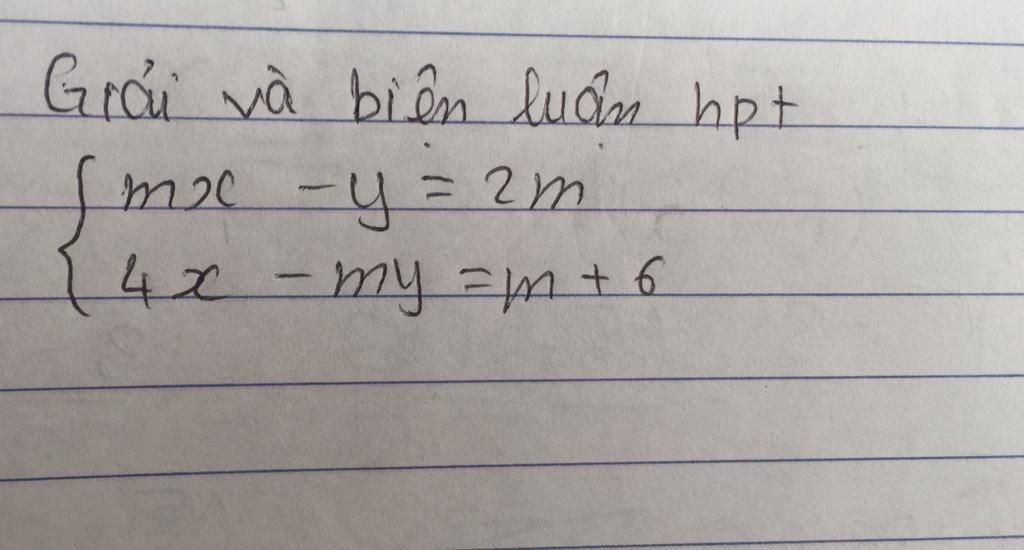 Giải và biện luận hpt
{ mx - y = 2m
4x - my = m + 6